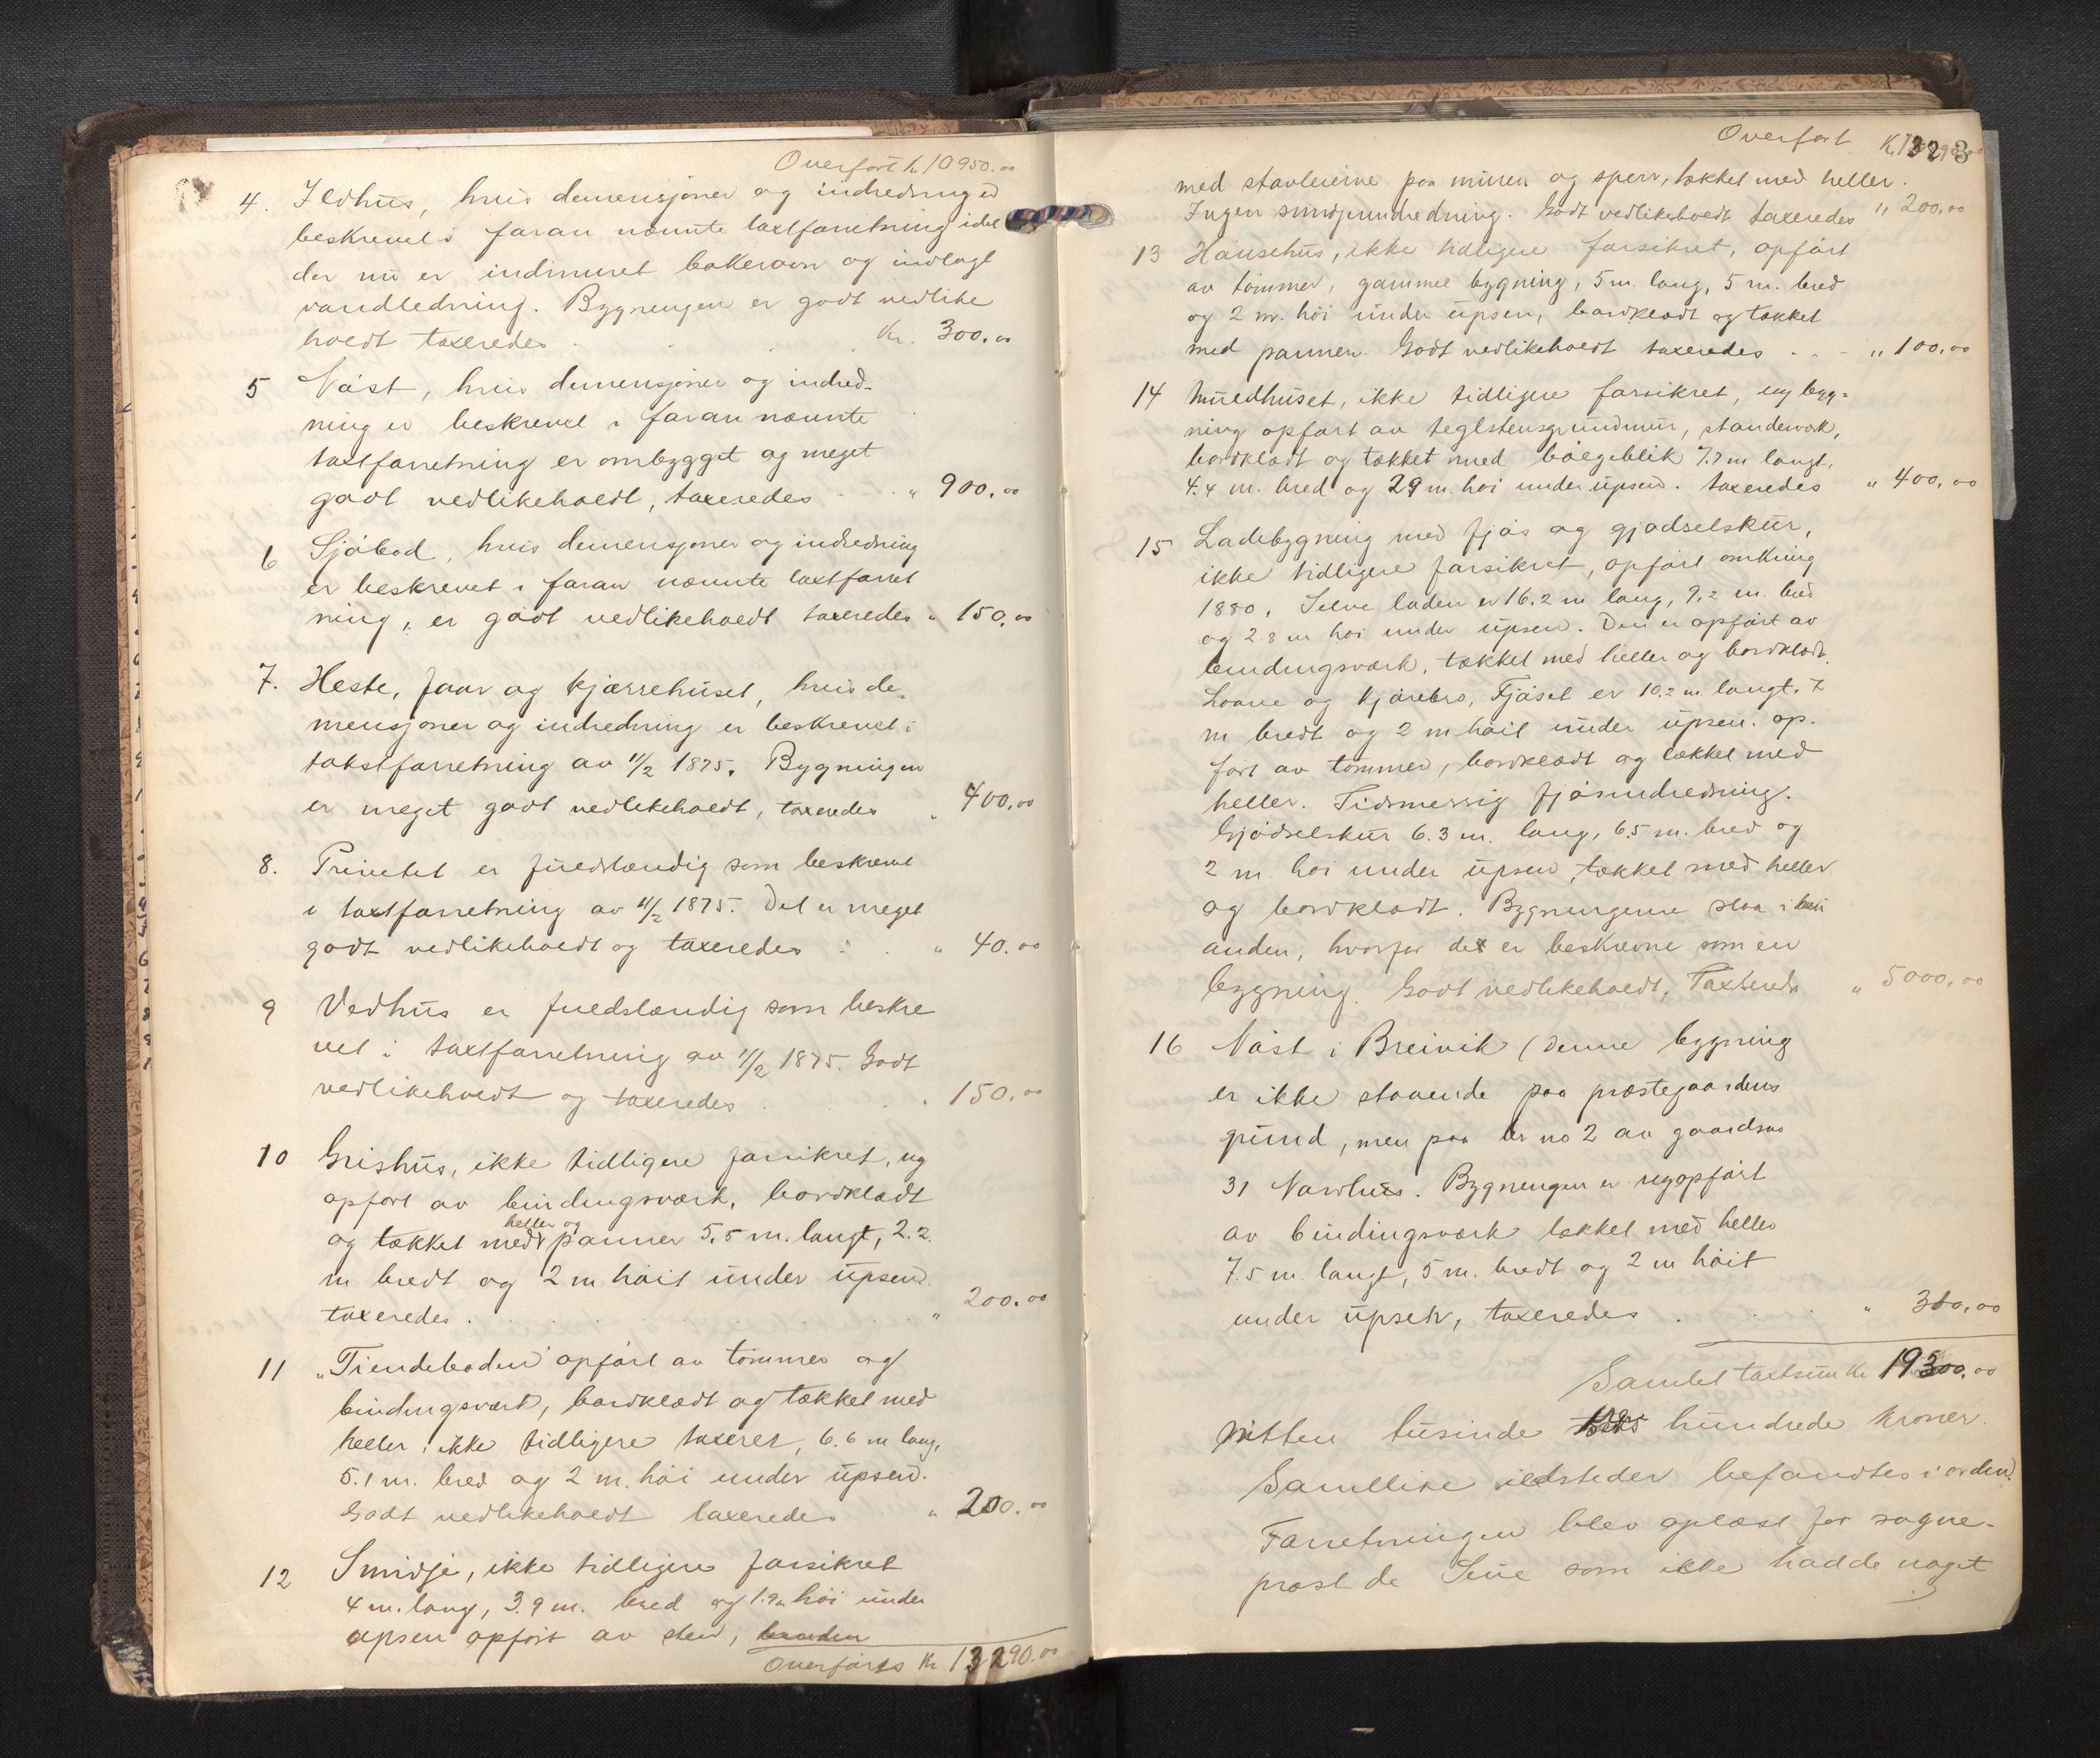 Overført Kr 10950.00
4. Ildhus, hvis demensjoner og indredning er
beskrevet i foran nævnte taxtforretning idet
der nu er indmuret bakerovn og indlagt
vandledning. Bygningen er godt vedlike
holdt taxeredes . . . Kr. 300.00
5 Nøst, hvis demensjoner og indred-
ning er beskrevet i foran nævnte
taxtforretning er ombygget og meget
godt vedlikeholdt, taxeredes . . " 900.00
6 Sjøbod, hvis demensjoner og indredning
er beskrevet i foran nævnte taxtforret
ning, er godt vedlikeholdt taxeredes " 150.00
7. Heste, faar og kjærrehuset, hvis de-
mensjoner og indredning er beskrevet i
takstforretning av 11/2 1875. Bygningen
er meget godt vedlikeholdt, taxeredes " 400.00
8. Privetet er fuldstændig som beskrevet
i taxtforretning av 11/2 1875. Det er meget
godt vedlikeholdt og taxeredes . . " 40.00
9 Vedhus er fuldstændig som beskre
vet i taxtforretning av 11/2 1875. Godt
vedlikeholdt og taxeredes . . . 150.00
10 Grishus, ikke tidligere forsikret, ny
opført av bindingsværk, bordklædt
heller og
og tækket med panner 5.5 m. langt, 2.2.
m bredt og 2 m høit under upsen.
taxeredes . . . " 200.00
11 "Tiendeboden" opført av tømmer og
bindingsværk, bordklædt og tækket med
heller, ikke tidligere taxeret, 6.6 m lang,
5.1 m. bred og 2 m. høi under upsen.
Godt vedlikeholdt taxeredes " 200.00
12 Smidje, ikke tidligere forsikret
4 m. lang, 3.9 m. bred og 1.9m høi under
upsen opført av sten,
Overføres Kr 13290.00
Overført Kr 13290.00
3
med stavleierne paa muren og sperr, tækket med heller.
Ingen smidjeindredning. Godt vedlikeholdt taxeredes " 200.00
13 Hønsehus, ikke tidligere forsikret, opført
av tømmer, gammel bygning, 5 m. lang, 5 m. bred
og 2 m. høi under upsen, bordklædt og tækket
med panner. Godt vedlikeholdt taxeredes . . - " 100.00
14 Hundhuset, ikke tidligere forsikret, ny byg-
ning opført av teglstensgrundmur, standerværk,
bordklædt og tækket med bølgeblik 7.7 m langt,
4.4 m. bred og 29 m. høi under upsen. taxeredes " 400,00
15 Ladebygning med fjøs og gjødselskur,
ikke tidligere forsikret, opført omkring
1880. Selve laden er 16.2 m lang, 9,2 m. bred
og 2.8 m høi under upsen. Den er opført av
bindingsværk, tækket med heller og bordklædt.
Loave og kjørebro, Fjøset er 10.2 m. langt, 7
m bredt og 2 m høit under upsen. op-
ført av tømmer, bordklædt og tækket med
heller. Tidsmessig fjøsindredning.
Gjødselskur 6.3 m. lang, 6.5 m. bred og
2 m. høi under upsen, tækket med heller
og bordklædt. Bygningerne staa i hin
anden, hvorfor de er beskrevne som en
bygning. Godt vedlikeholdt, Taxeredes " 5000,00
16 Nøst i Breivik (Denne bygning
er ikke staaende paa præstegaardens
grund, men paa br no 2 av gaardsno
31 Navlhus. Bygningen er nyopført
av bindingsværk tækket med heller
7.5 m. langt, 5 m. bredt og 2 m høit
under upsen, taxeredes . . . " 300,00
Samlet taxtsum Kr 19300.00
Nitten tusinde hundrede kroner.
Samtlike ildsteder befandtes i orden.
Forretningen blev oplæst for sogne-
prest de Seve som ikke hadde noget